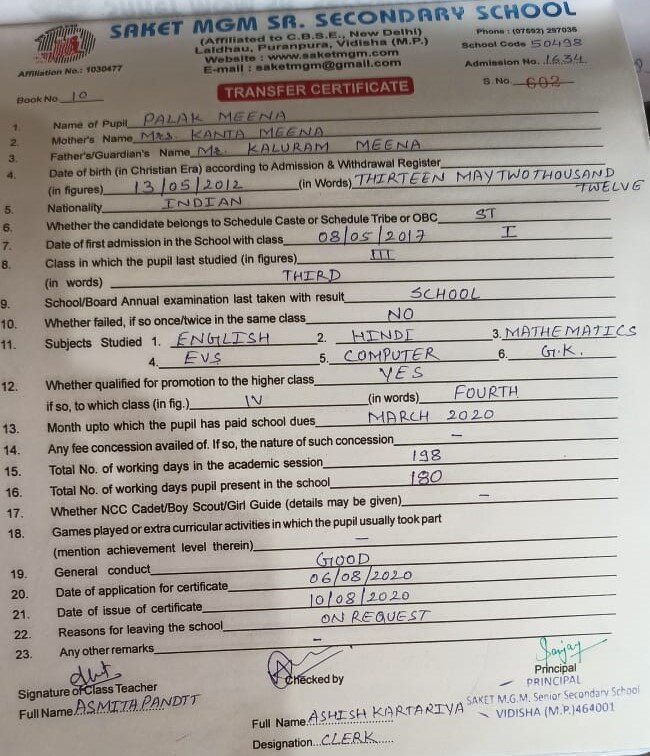 SAKET MGM SR. SECONDARY SCHOOL
(Affiliated to C.B.S.E., New Delhi)
Laldhau, Puranpura, Vidisha (M.P.)
Website : www.saketmgm.com
E-mail : saketmgm@gmail.com
Phone : (07592) 297035
School Code 50498
Affiliation No.: 1030477
Admission No. 1634
Book No. 10
S. No. 602
TRANSFER CERTIFICATE
1. Name of Pupil PALAK MEENA
2. Mother's Name Mrs. KANTA MEENA
3. Father's/Guardian's Name Mr. KALURAM MEENA
4. Date of birth (in Christian Era) according to Admission & Withdrawal Register
(in figures) 13/05/2012 (in Words) THIRTEEN MAY TWO THOUSAND
TWELVE
5. Nationality INDIAN
6. Whether the candidate belongs to Schedule Caste or Schedule Tribe or OBC ST
7. Date of first admission in the School with class 08/05/2017 I
8. Class in which the pupil last studied (in figures) III
(in words) THIRD
9. School/Board Annual examination last taken with result SCHOOL
10. Whether failed, if so once/twice in the same class NO
11. Subjects Studied 1. ENGLISH 2. HINDI 3. MATHEMATICS
4. EVS 5. COMPUTER 6. G.K.
12. Whether qualified for promotion to the higher class YES
if so, to which class (in fig.) IV (in words) FOURTH
13. Month upto which the pupil has paid school dues MARCH 2020
14. Any fee concession availed of. If so, the nature of such concession –
15. Total No. of working days in the academic session 198
16. Total No. of working days pupil present in the school 180
17. Whether NCC Cadet/Boy Scout/Girl Guide (details may be given) –
18. Games played or extra curricular activities in which the pupil usually took part
(mention achievement level therein) –
19. General conduct GOOD
20. Date of application for certificate 06/08/2020
21. Date of issue of certificate 10/08/2020
22. Reasons for leaving the school ON REQUEST
23. Any other remarks –
Signature of Class Teacher
Full Name ASMITA PANDIT
Checked by
Full Name ASHISH KARTARIYA
Designation CLERK
Sanjay
Principal
PRINCIPAL
SAKET M.G.M. Senior Secondary School
VIDISHA (M.P.)464001